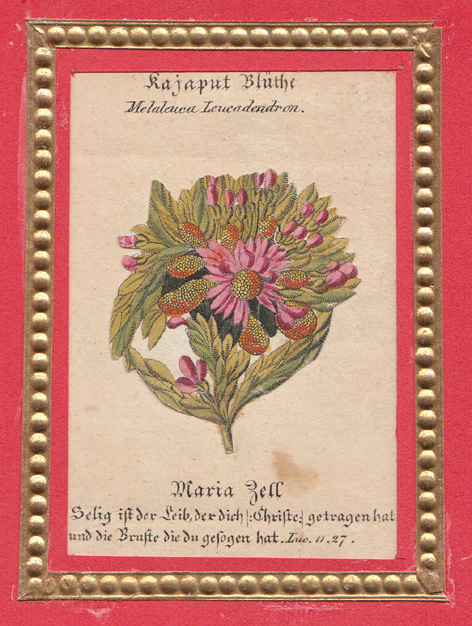 Kajaput Blüthe
Melaleuca Leucadendron.
Maria Zell
Selig ist der Leib, der dich |: Christe :| getragen hat
und die Bruste die du gesogen hat. Luc. 11. 27.